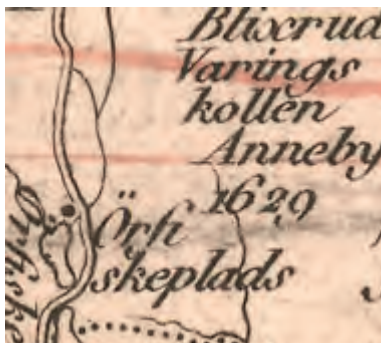 Blixrud
Varings
kollen
Anneby
1629
Örfi
skeplads